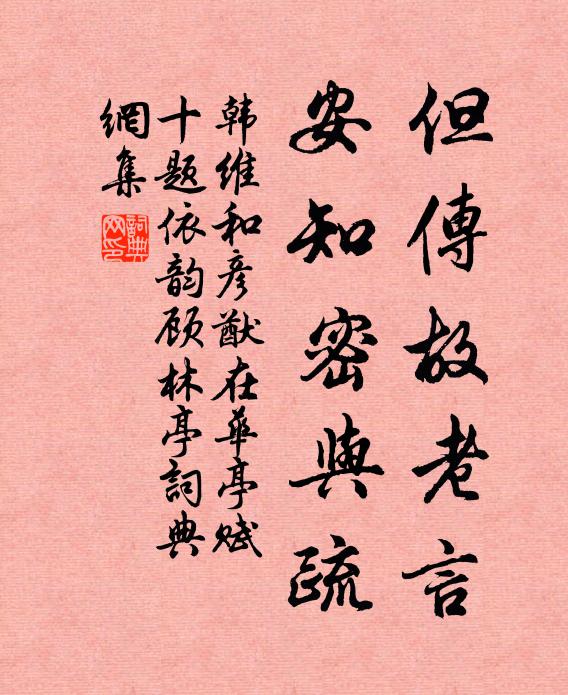 但傳故老言
安知密與疏
韩维和彦猷在華亭赋
十题依韵顾林亭詞典
網集
詞典
网印